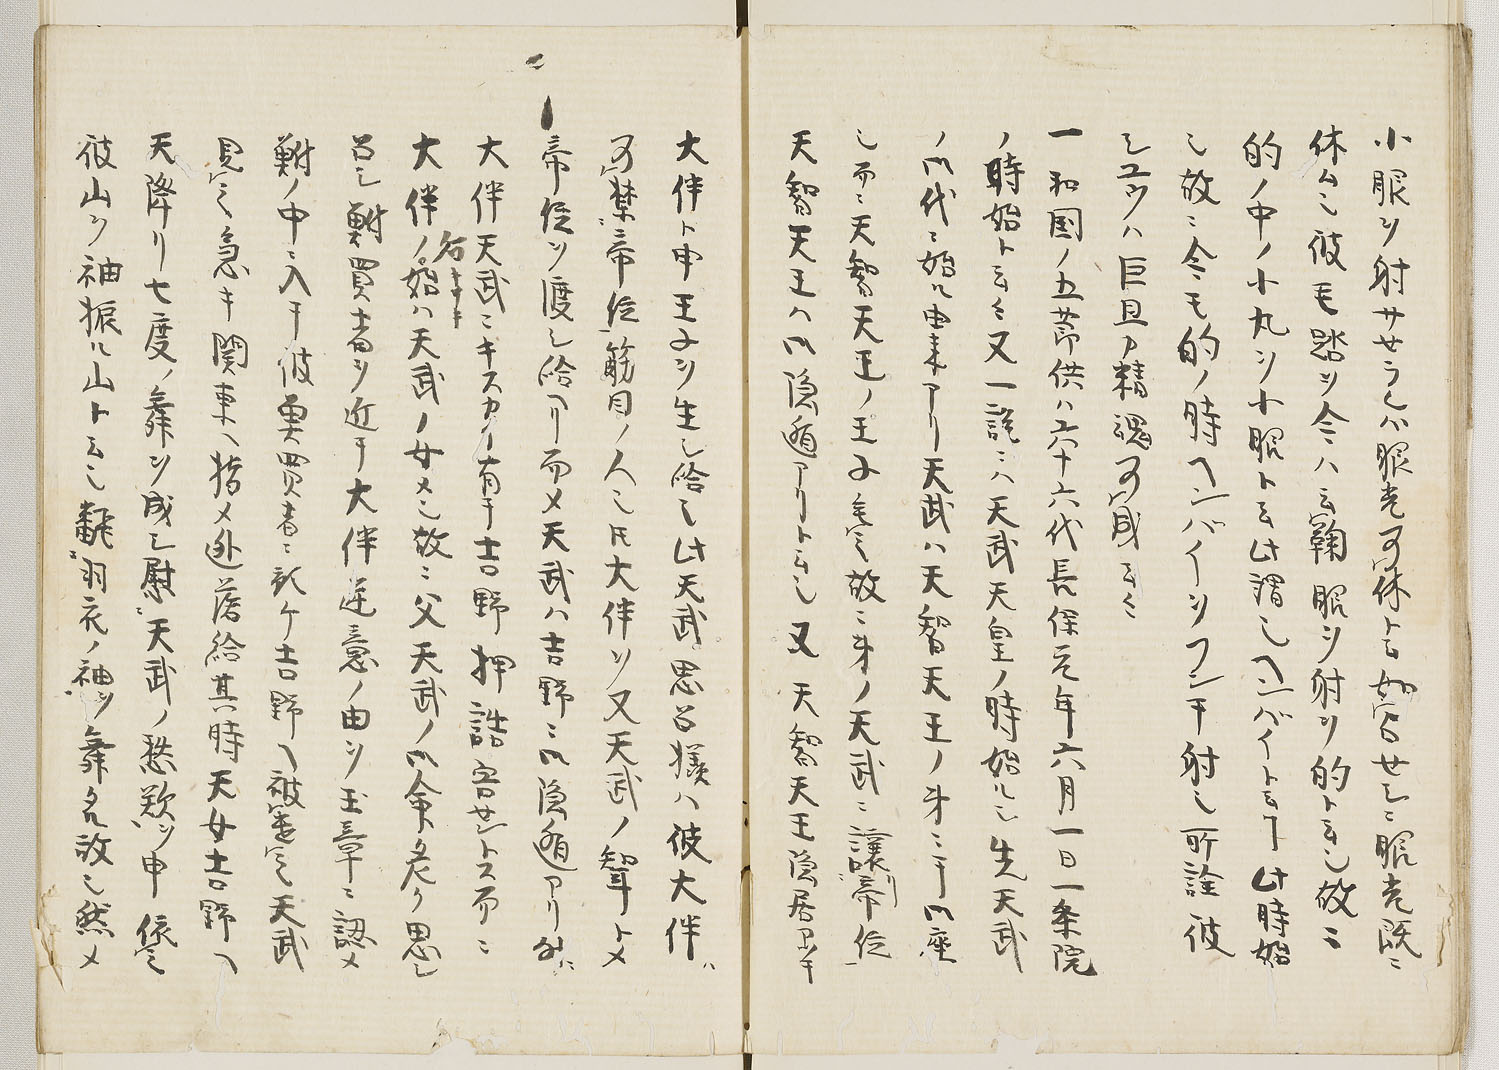 小眼ヲ射サセラレハ眼光可休ト云如客セシニ眼光既ニ
休ム也彼毛踏ヲ今ハ云鞠眼ヲ射ヲ的ト云也故ニ
的ノ中ノ小丸ヲ小眼ト云此謂也ヘンバイト云此時始
也故ニ今モ的ノ時ヘンバイヲフンテ射也所詮彼
シユウハ巨旦ノ精魂可成云々
一和国ノ五節供ハ六十六代長保元年六月一日一条院
ノ時始ト云々又一説ニハ天武天皇ノ時始ル也先天武
ノ御代ニ始ル由来アリ天武ハ天智天王ノ弟ニテ御座
也而ニ天智天王ノ王子無シテ故ニ弟ノ天武ニ譲リ帝位
天智天王ハ御隠遁アリト云也又天智天王隠居アテ
大伴ト申王子ヲ生シ給シ此天武思召様ハ彼大伴ハ
可禁帝位筋目ノ人也只大伴ヲ又天武ノ聟トメ
帝位ヲ渡シ給ヘリ而メ天武ハ吉野ニ御隠遁アリ爰ニ
大伴天武ニキスカイ有テ吉野押詰害セントス而ニ
大伴ノ始ハ天武ノ女メ也故ニ父天武ノ御命危ク思シ
召シ鮒買者ヲ近テ大伴逆意ノ由ヲ玉章ニ認メ
鮒ノ中ニ入テ彼魚買者ニ預ケ吉野ヘ被遣シテ天武
見シテ急キ関東ヘ指メ逃落給其時天女吉野ヘ
天降リ七度ノ舞ヲ成シ慰ニ天武ノ愁歎ヲ申依シテ
彼山ヲ袖振ル山ト云也翻羽衣ノ袖ヲ舞名故也然メ